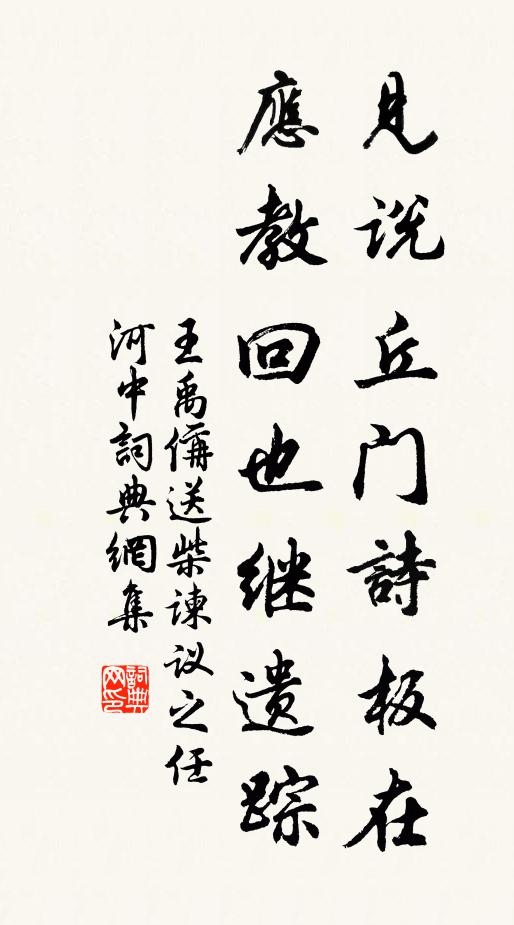 見说丘门詩板在
應教回也继遗踪
王禹偁送柴谏议之任
河中詞典網集
詞典
网印